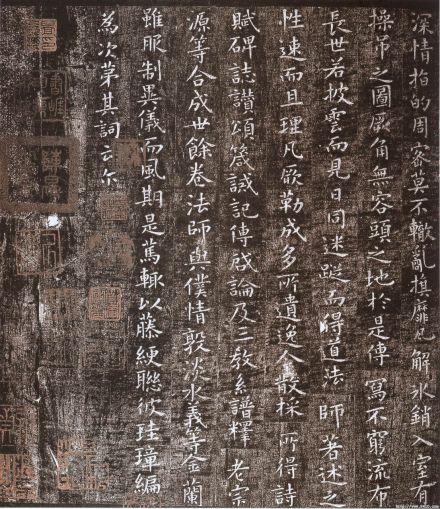 深情指的周密莫不轍亂旗靡瓦解氷銷入室有
操戈之圖厥角無容頭之地於是傳寫不窮流布
長世若披雲而見日同迷蹤而得道法師著述之
性速而且理凡欲勒成多所遺逸今散採所得詩
賦碑誌讚頌箴誡記傳啟論及三教系譜釋老宗
源等合成卅餘卷法師與僕情敦淡水義等金蘭
雖服制異儀而風期是篤輒以藤綆聯彼珪璋編
為次第其詞云尔